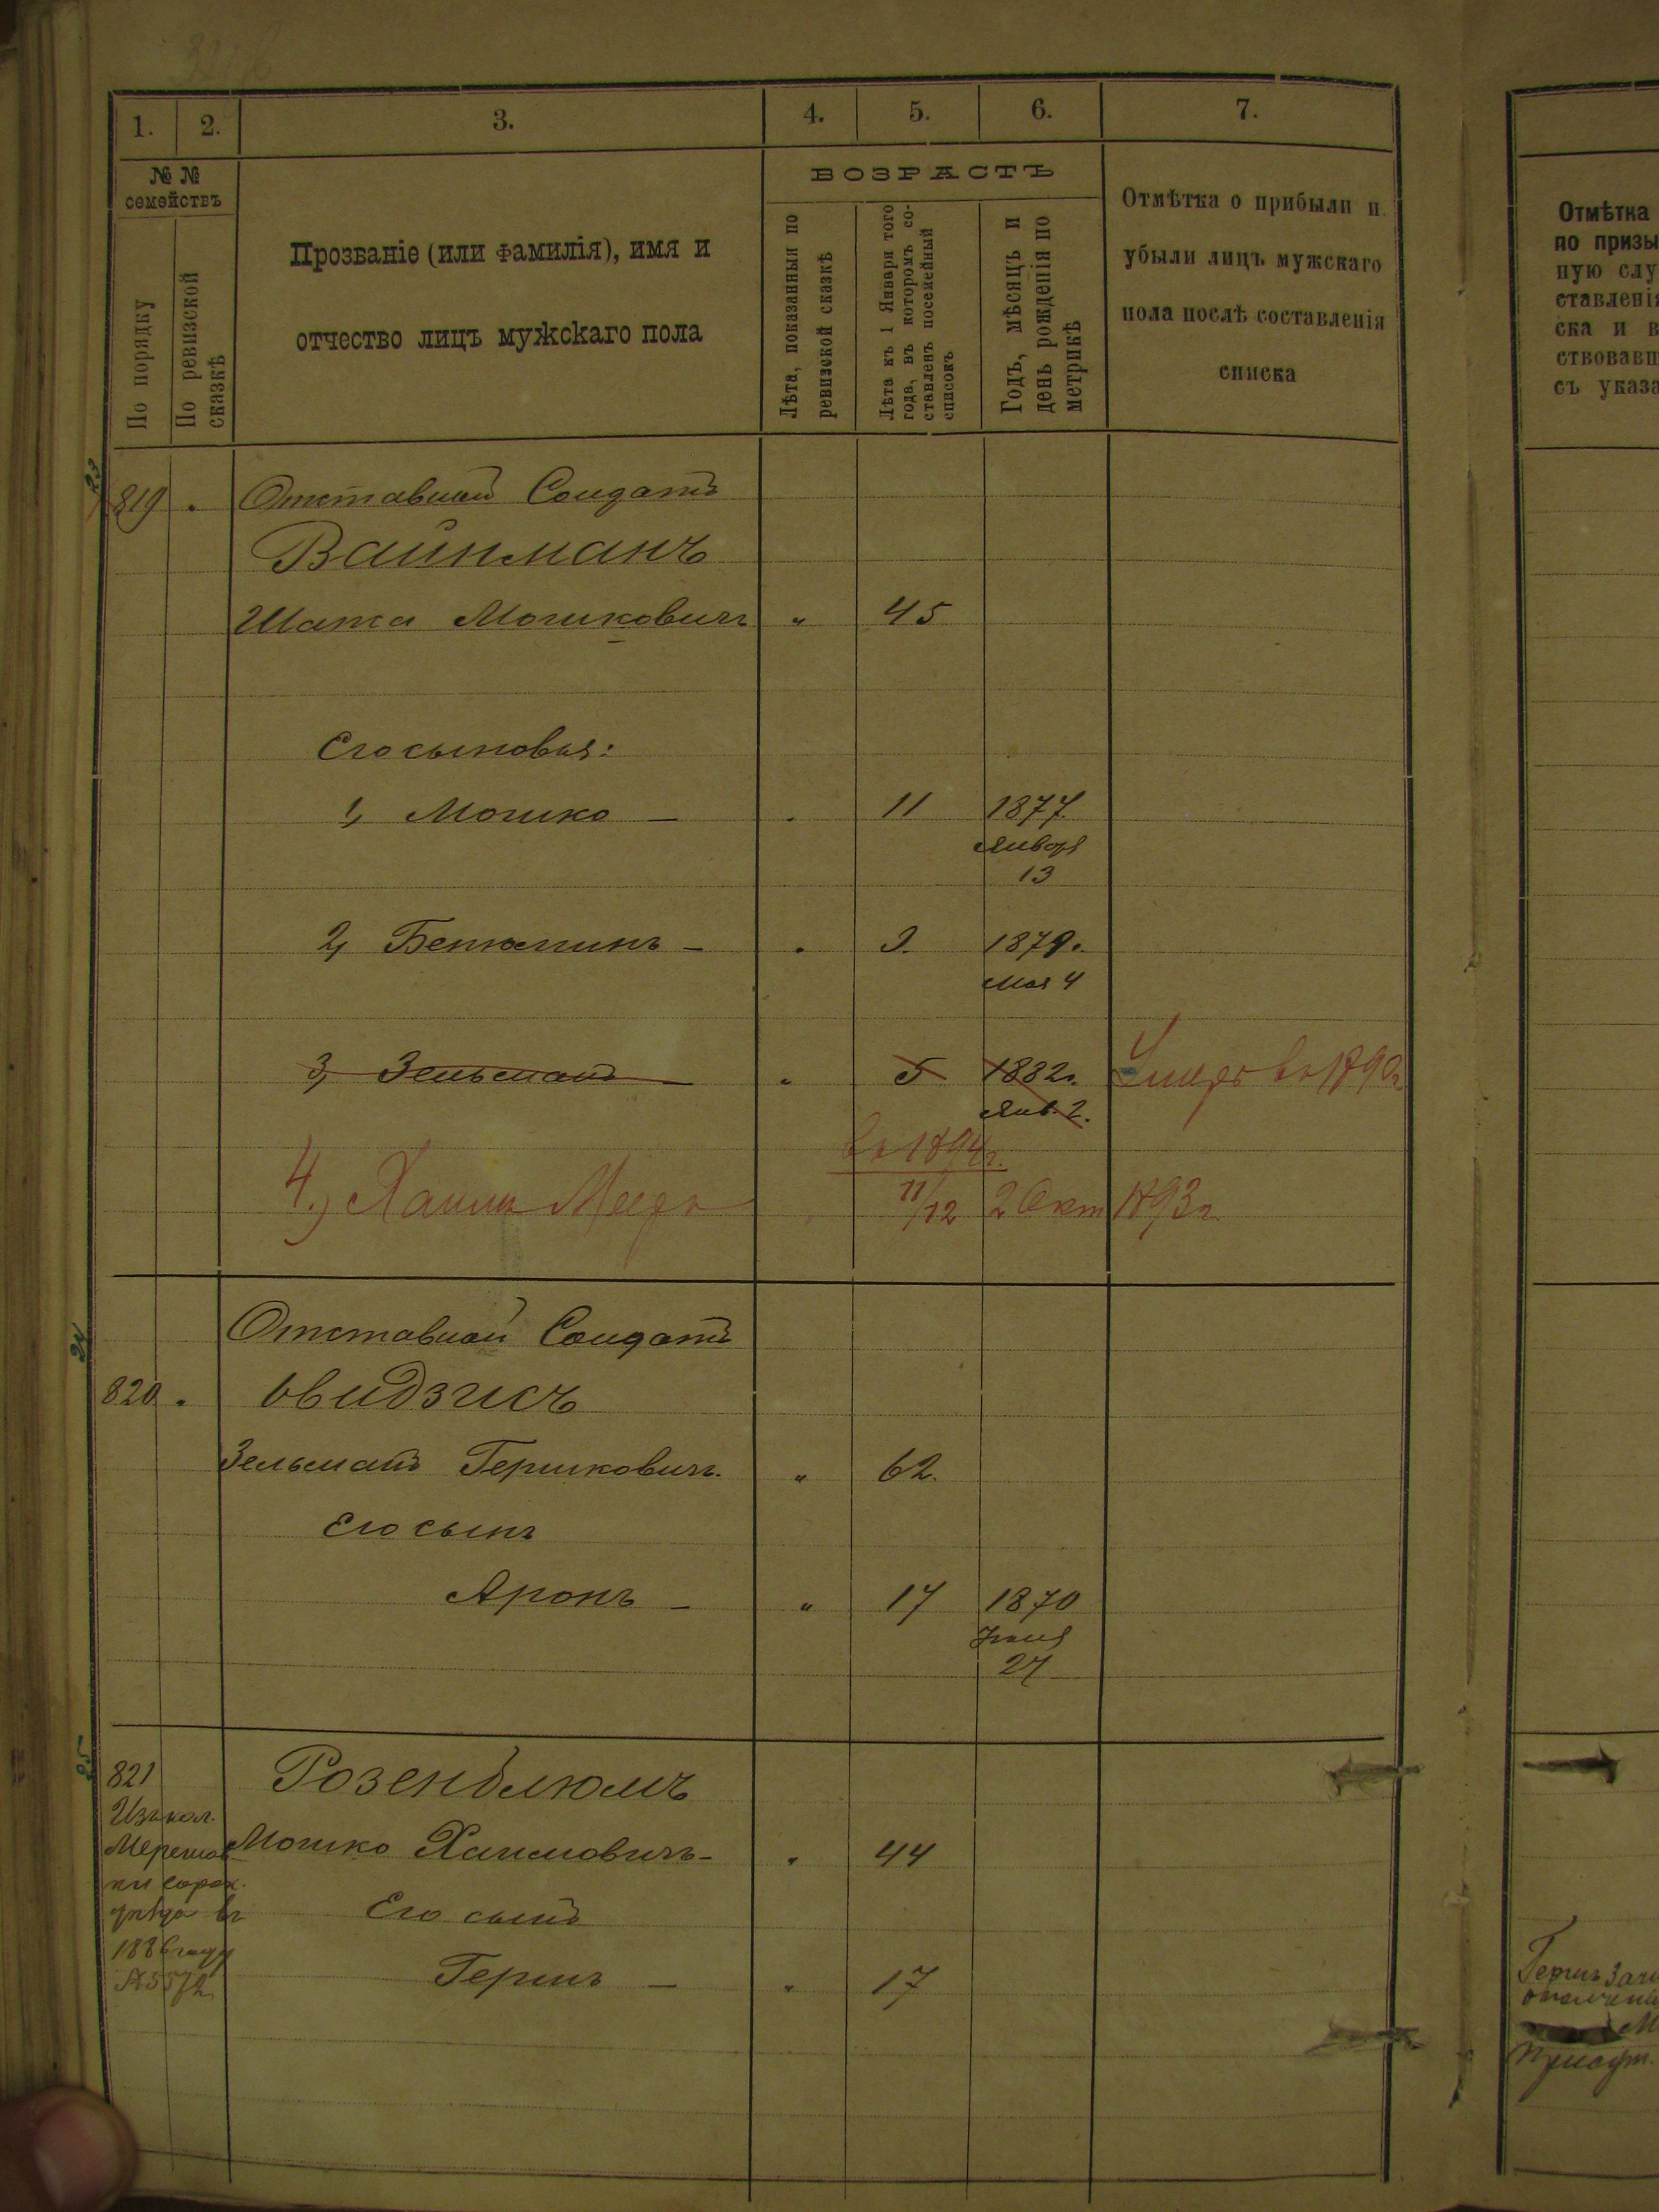 1. 2. 3. 4. 5. 6. 7.
№ №
семействъ
По порядку
По ревизской
сказкѣ
Прозваніе (или фамилія), имя и
отчество лицъ мужскаго пола
ВОЗРАСТЪ
Лѣта, показанныя по
ревизской сказкѣ
Лѣта къ 1 Января того
года, въ которомъ со-
ставленъ посемейный
списокъ
Годъ, мѣсяцъ и
день рожденія по
метрикѣ
Отмѣтка о прибыли и
убыли лицъ мужскаго
пола послѣ составленія
списка
Отмѣтка
по призы
ную слу
ставленія
ска и в
ствовавш
съ указа
23
819 . Отставной Солдатъ
Вайнманъ
Шапса Мошковичъ " 45
Его сыновья:
1, Мошко — . 11 1877.
Января
13
2, Бенюминъ — . 1879.
Мая 4
3, Зельманъ — " 5 1882г.
Янв. 2.
Умеръ въ 1890г.
въ 1894г.
4.) Хаимъ Мееръ 11/12 2 Окт 1893г.
24
Отставной Солдатъ
820 . Овидзисъ
Зельманъ Гершковичъ. " 62.
Его сынъ
Аронъ — " 17 1870
27
25
821 Розенблюмъ
Изъ кол.
Мошко Хаимовичъ — . 44
ки Сорок.
уѣзда въ
Его сынъ
1886 году
№ 5572
Гершъ — " 17
Гершъ